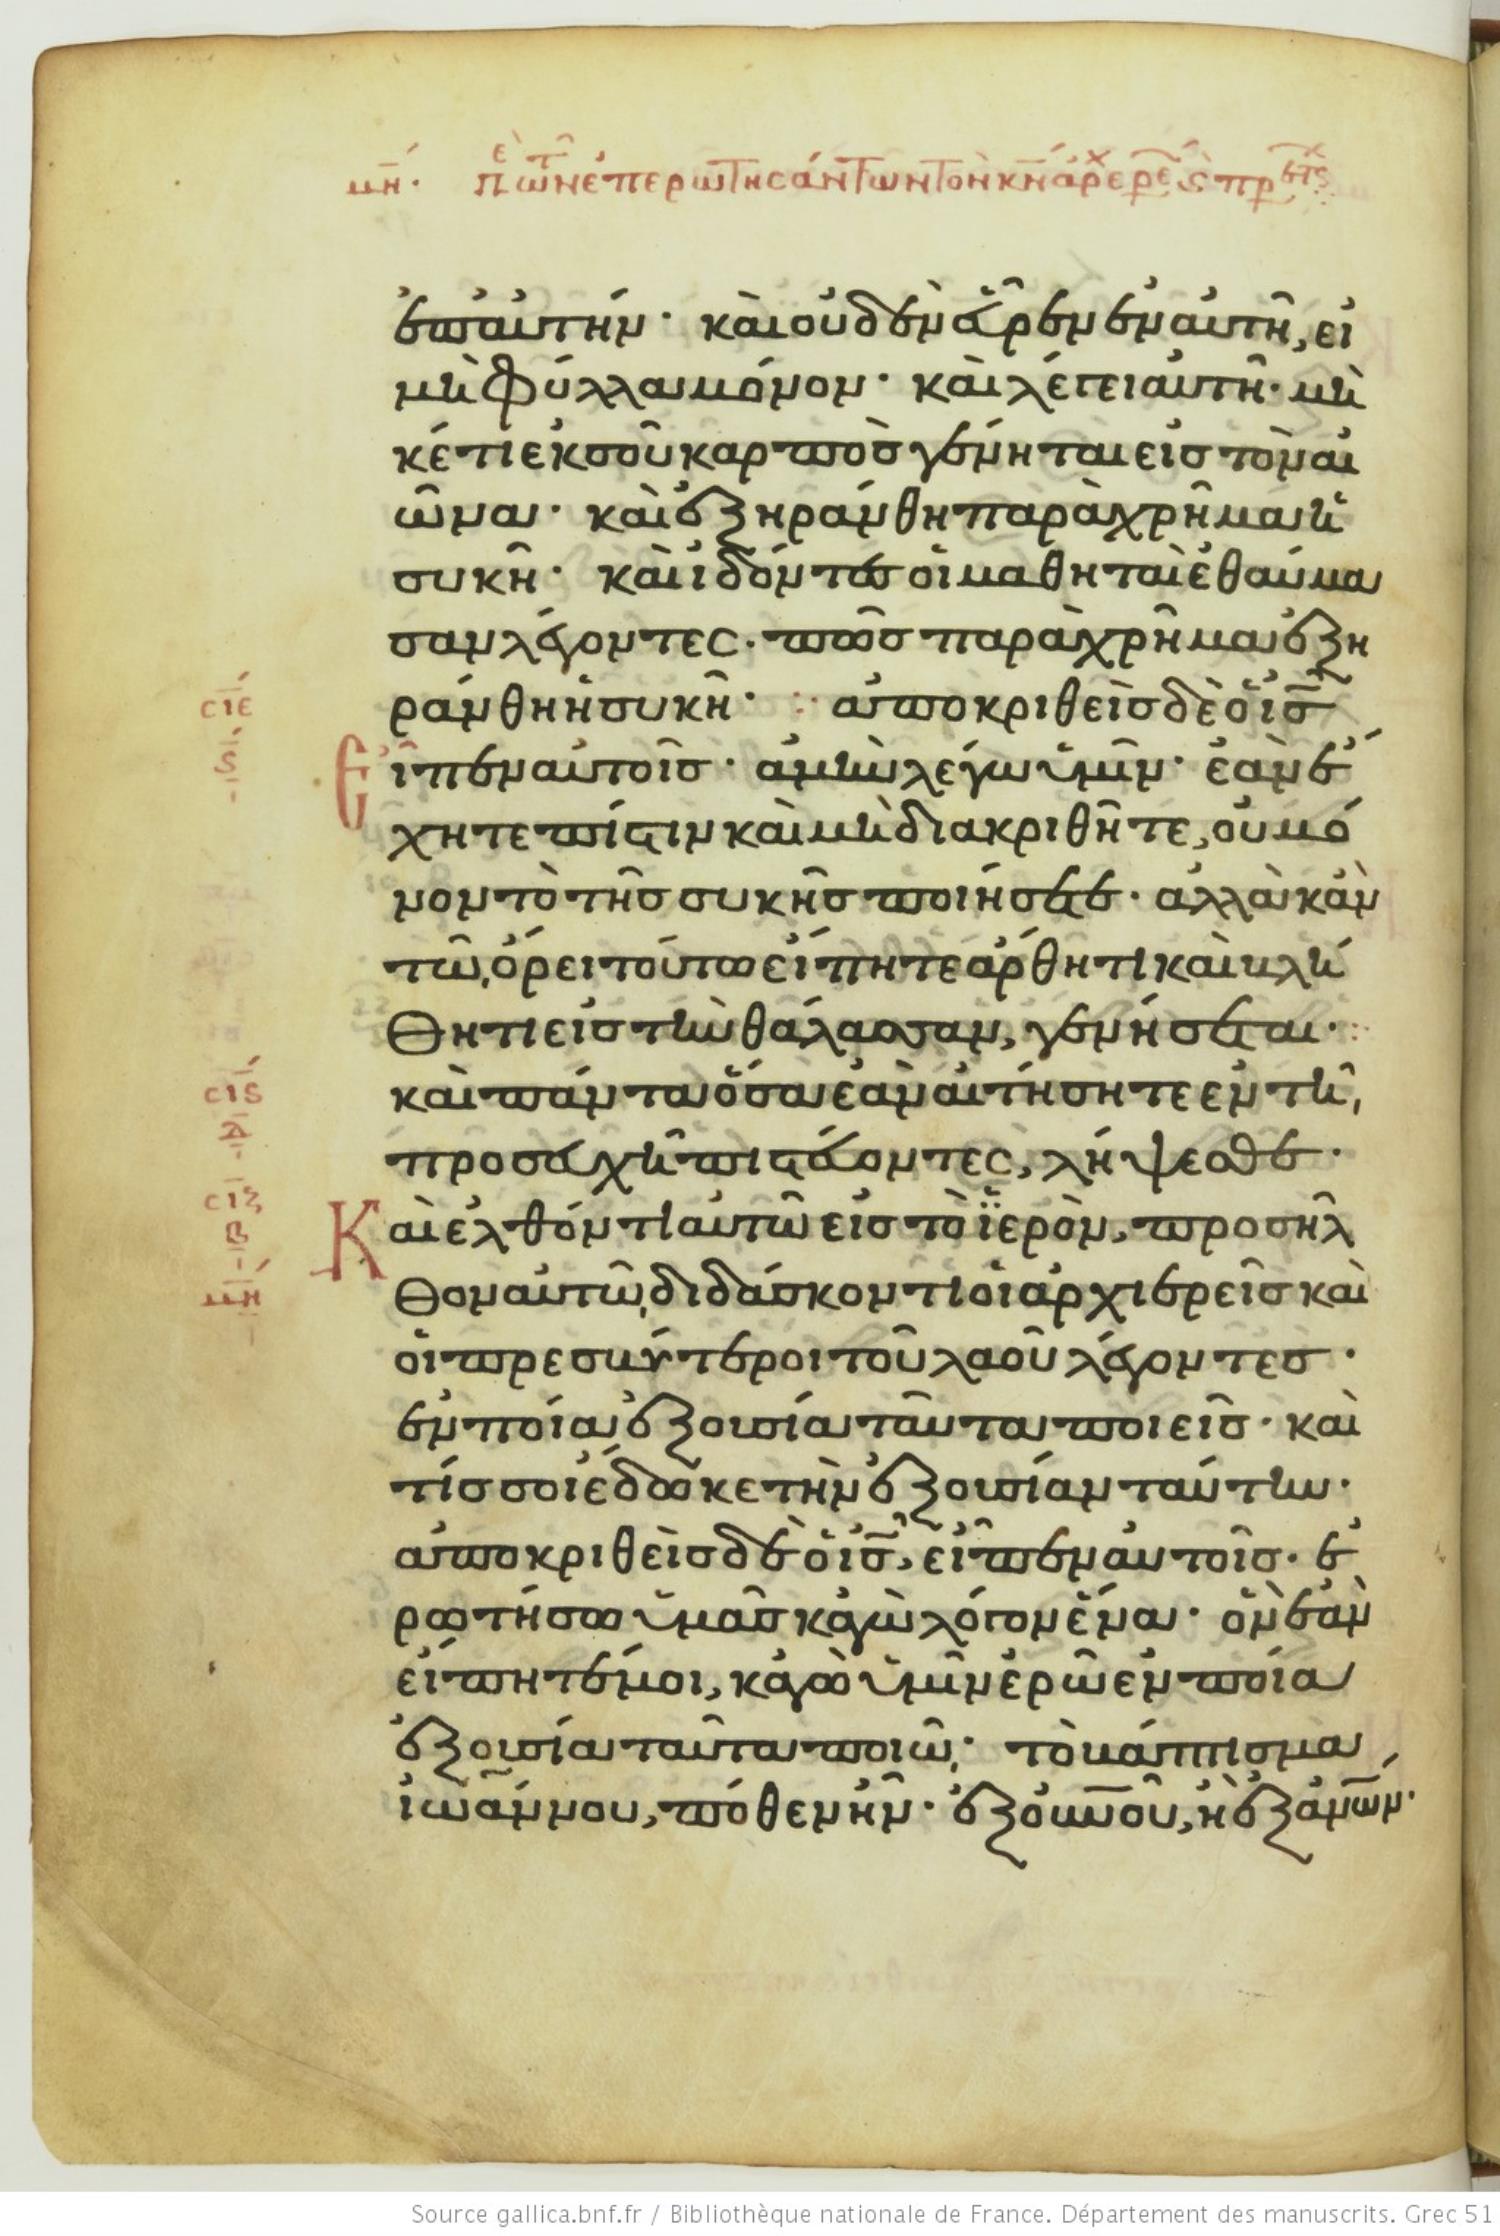 μη· περὶ τῶν ἐπερωτησάντων τὸν κν ἀρχερε ϛ πρ
ἐπαυτήν· καὶ οὐδὲν εὗρεν ἐν αὐτῆ, εἰ
μὴ φύλλα μόνον· καὶ λέγει αὐτῆ· μὴ
κέτι ἐκ σοῦ καρπὸσ γένηται εἰσ τὸν αἰ
ῶνα· καὶ ἐξηράνθη παρὰχρῆμα ἡ
συκῆ· καὶ ἰδόντεσ οἱ μαθηταὶ ἐθαύμα
σαν λέγοντες· πῶσ παρὰχρῆμα ἐξη
ράνθη ἡ συκῆ· ἀποκριθεὶσ δὲ ὁ ἰσ
σιε
ϛ
Εἶπεν αὐτοῖσ· ἀμὴν λέγω ὑμῖν· ἐὰν ἔ
χητε πίστιν καὶ μὴ διακριθῆτε, ου μό
νον τὸ τῆσ συκῆσ ποιήσετε· ἀλλὰ κἂν
τῶ ὄρει τούτω εἴπητε ἄρθητι καὶ βλή
θητι εἰσ τὴν θάλασσαν, γενήσεται·
σιϛ
δ
καὶ πάντα ὅσα ἐὰν αἰτήσητε ἐν τῆ
προσευχῆ πιστεύοντες, λήψεσθε·
σιζ
β
μη
Καὶ ἐλθόντι αὐτῶ εἰσ τὸ ἱερὸν, προσῆλ
θον αὐτῶ διδάσκοντι οἱ ἀρχιερεῖσ καὶ
οἱ πρεσβύτεροι τοῦ λαοῦ λέγοντεσ·
ἐν ποία ἐξουσία ταῦτα ποιεῖσ· καὶ
τίσ σοι ἔδωκε τὴν ἐξουσίαν ταύτην·
ἀποκριθεὶσ δὲ ὁ ἰσ, εἶπεν αὐτοῖσ· ἐ
ρωτήσω ὑμᾶσ κἀγὼ λόγον ἕνα· ὃν ἐὰν
εἴπητέ μοι, κἀγὼ ὑμῖν ἐρῶ ἐν ποία
ἐξουσία ταῦτα ποιῶ· τὸ βάπτισμα
ἰωάννου, πόθεν ἦν· ἐξ οὐνοῦ, ἢ ἐξ ἀνων·
Source gallica.bnf.fr / Bibliothèque nationale de France. Département des manuscrits. Grec 51